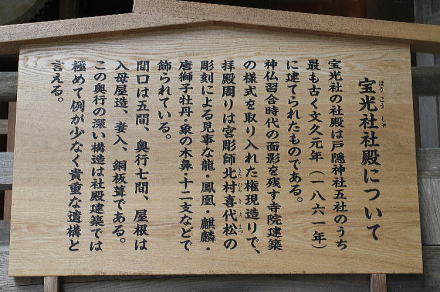 宝光社社殿について
ほうこうしゃ
宝光社の社殿は戸隠神社五社のうち
最も古く文久元年（一八六一年）
に建てられたものである。
神仏習合時代の面影を残す寺院建築
の様式を取り入れた権現造りで、
拝殿周りは宮彫師北村喜代松の
彫刻による見事な龍・鳳凰・麒麟・
唐獅子牡丹・象の木鼻・十二支などで
飾られている。
間口は五間、奥行七間、屋根は
入母屋造 妻入、銅板葺である。
この奥行の深い構造は社殿建築では
極めて例が少なく貴重な遺構と
言える。